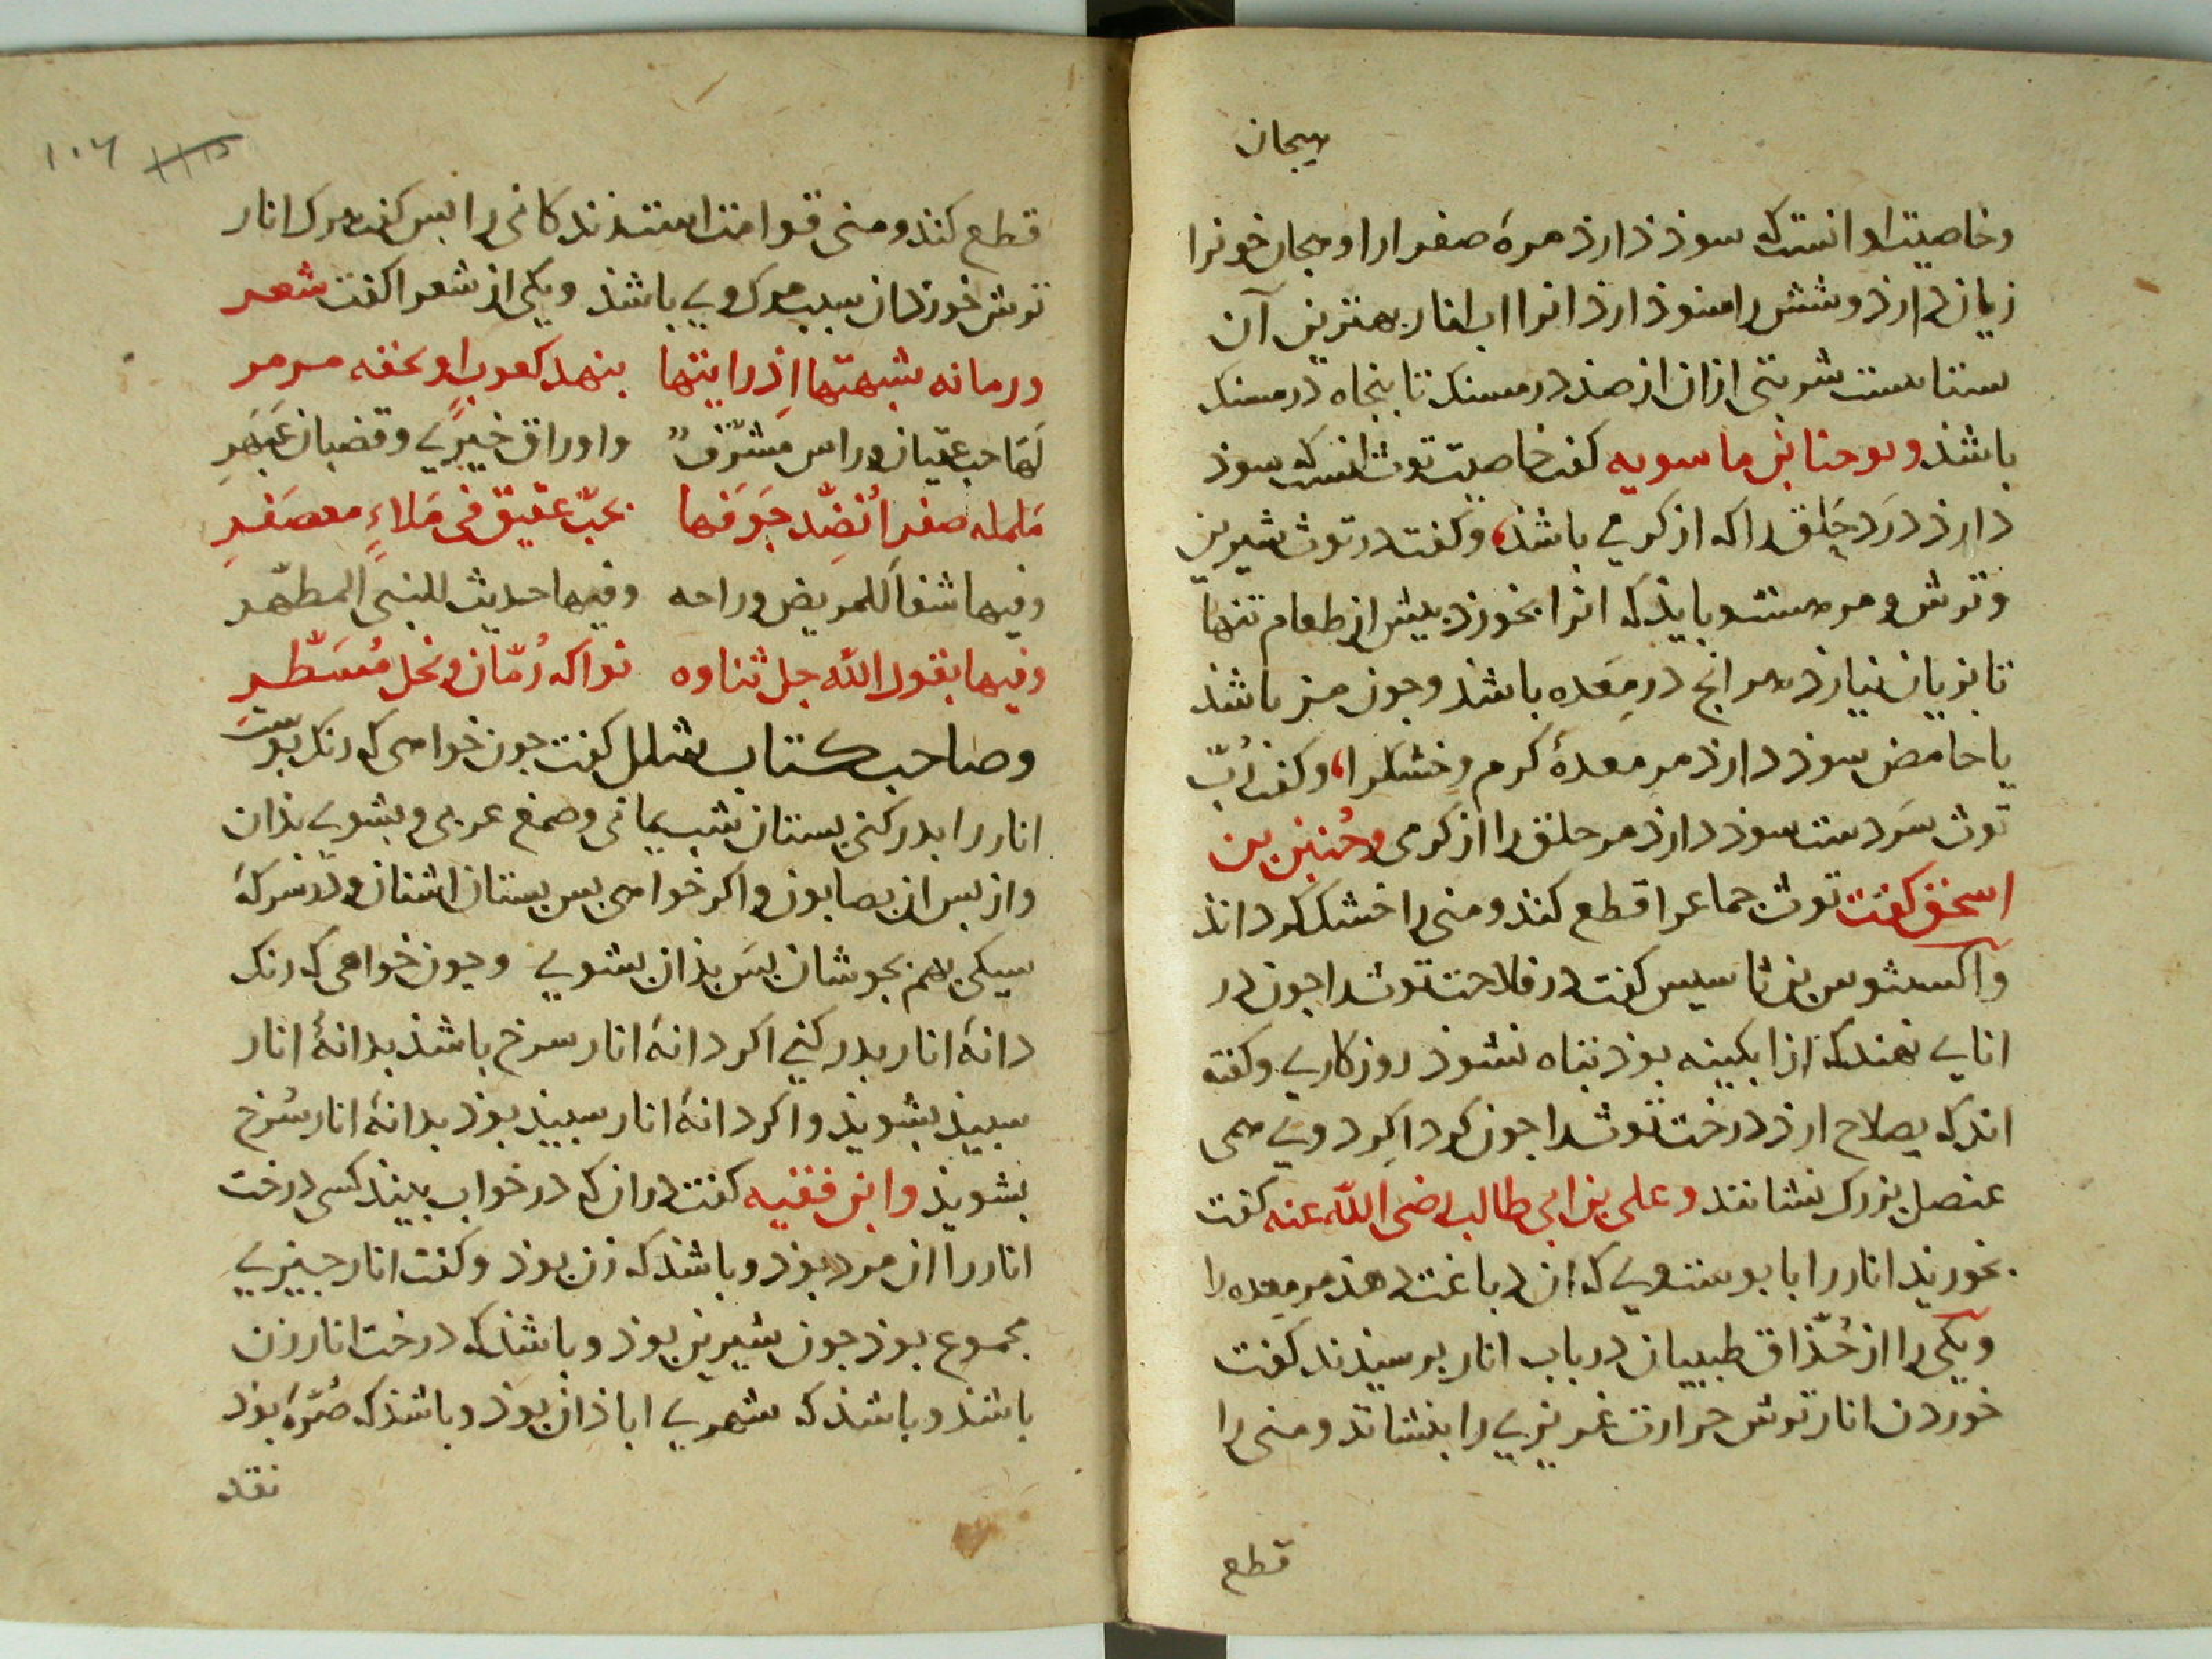 هیجان
وخاصیت او انست که سوذ دارذ مرهٔ صفرا را وهیجان خونرا
زیان دارذ وشش را سوذ دارذ انرا اب انار بهترین آن
ستاست شربتی ازان از صذ درمسنک تا بنجاه درمسنک
باشذ ویوحنا بن ماسویه کفت خاصیت توث انست که سوذ
دارذ درد حلق را که از کرمی باشذ، وکفت در توث شیرین
وترش ومر هست وبایذ که انرا بخورند بیش از طعام تنها
تا بزیان نیارذ هر انج در معده باشذ وجون مز باشذ
یا حامض سوذ دارذ مر معدهٔ کرم وخشکرا، وکفت ربّ
توث سردست سوذ دارذ مر حلق را از کرمی وحُنین بن
اسحق کفت توث جماعرا قطع کند ومنی را خشک کرداند
واکسیثوس بن ثاسیس کفت در فلاحت توث را جون در
انایی نهند که از ابکینه بوذ تباه نشوذ روزکاری وکفته
اند که بصلاح ارذ درخت توث را جون کرداکرد وی همی
عنصل بزرک نشانند وعلی بن ابی طالب رضی الله عنه کفت
بخورید انار را با بوست وی که ان دباغت دهذ مر معده را
ویکی را از حُذّاق طبیبان در باب انار برسیذند کفت
خوردن انار ترش حرارت غریزی را بنشاند ومنی را
قطع
۱۰۶
قطع کند ومنی قوامت است زندکانی را بس کفت هرک انار
ترش خورد ان سبب مرک وی باشذ ویکی از شعرا کفت شعر
ورمانه شبهتها اذ رایتها بنهد کعوب او بحقه مرمر
لها حب عقیان وراس مشرّف واوراق خیری وقضبان عبهر
ململه صفرا نُضّد جوفها بحبّ عقیق فی ملاءٍ معصفر
وفیها شفاً للمریض وراحه وفیها حدیث للنبی المطهّر
وفیها بقول الله جل ثناوه فواکه رُمّان ونخل مُسَطّر
وصاحب کتاب شلل کفت جون خواهی که رنک بوست
انار را بدر کنی بستان شب یمانی وصمغ عربی وبشوی بذان
واز بس ان بصابون واکر خواهی بس بستان اشنان ودر سرکهٔ
سیکی بهم بجوشان بس بذان بشوی وجون خواهی که رنک
دانهٔ انار بدر کنی اکر دانهٔ انار سرخ باشذ بدانهٔ انار
سبیذ بشویذ واکر دانهٔ انار سبیذ بوذ بدانهٔ انار سُرخ
بشویذ وابن فقیه کفت در ان که در خواب بیند کسی درخت
انار را ان مرد بوذ وباشذ که زن بوذ وکفت انار جیزی
مجموع بوذ جون شیرین بوذ وباشذ که درخت انار زن
باشذ وباشذ که شهری اباذان بوذ وباشذ که صُرّه بوذ
نقد